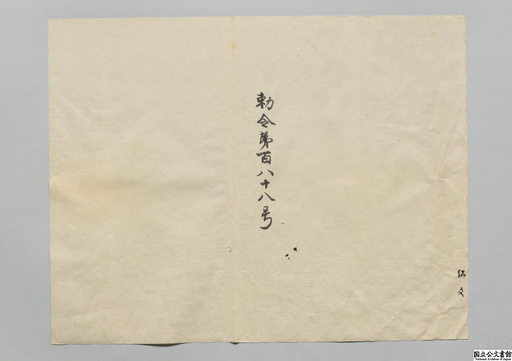 勅令第百八十八号
国立公文書館
National Archives of Japan